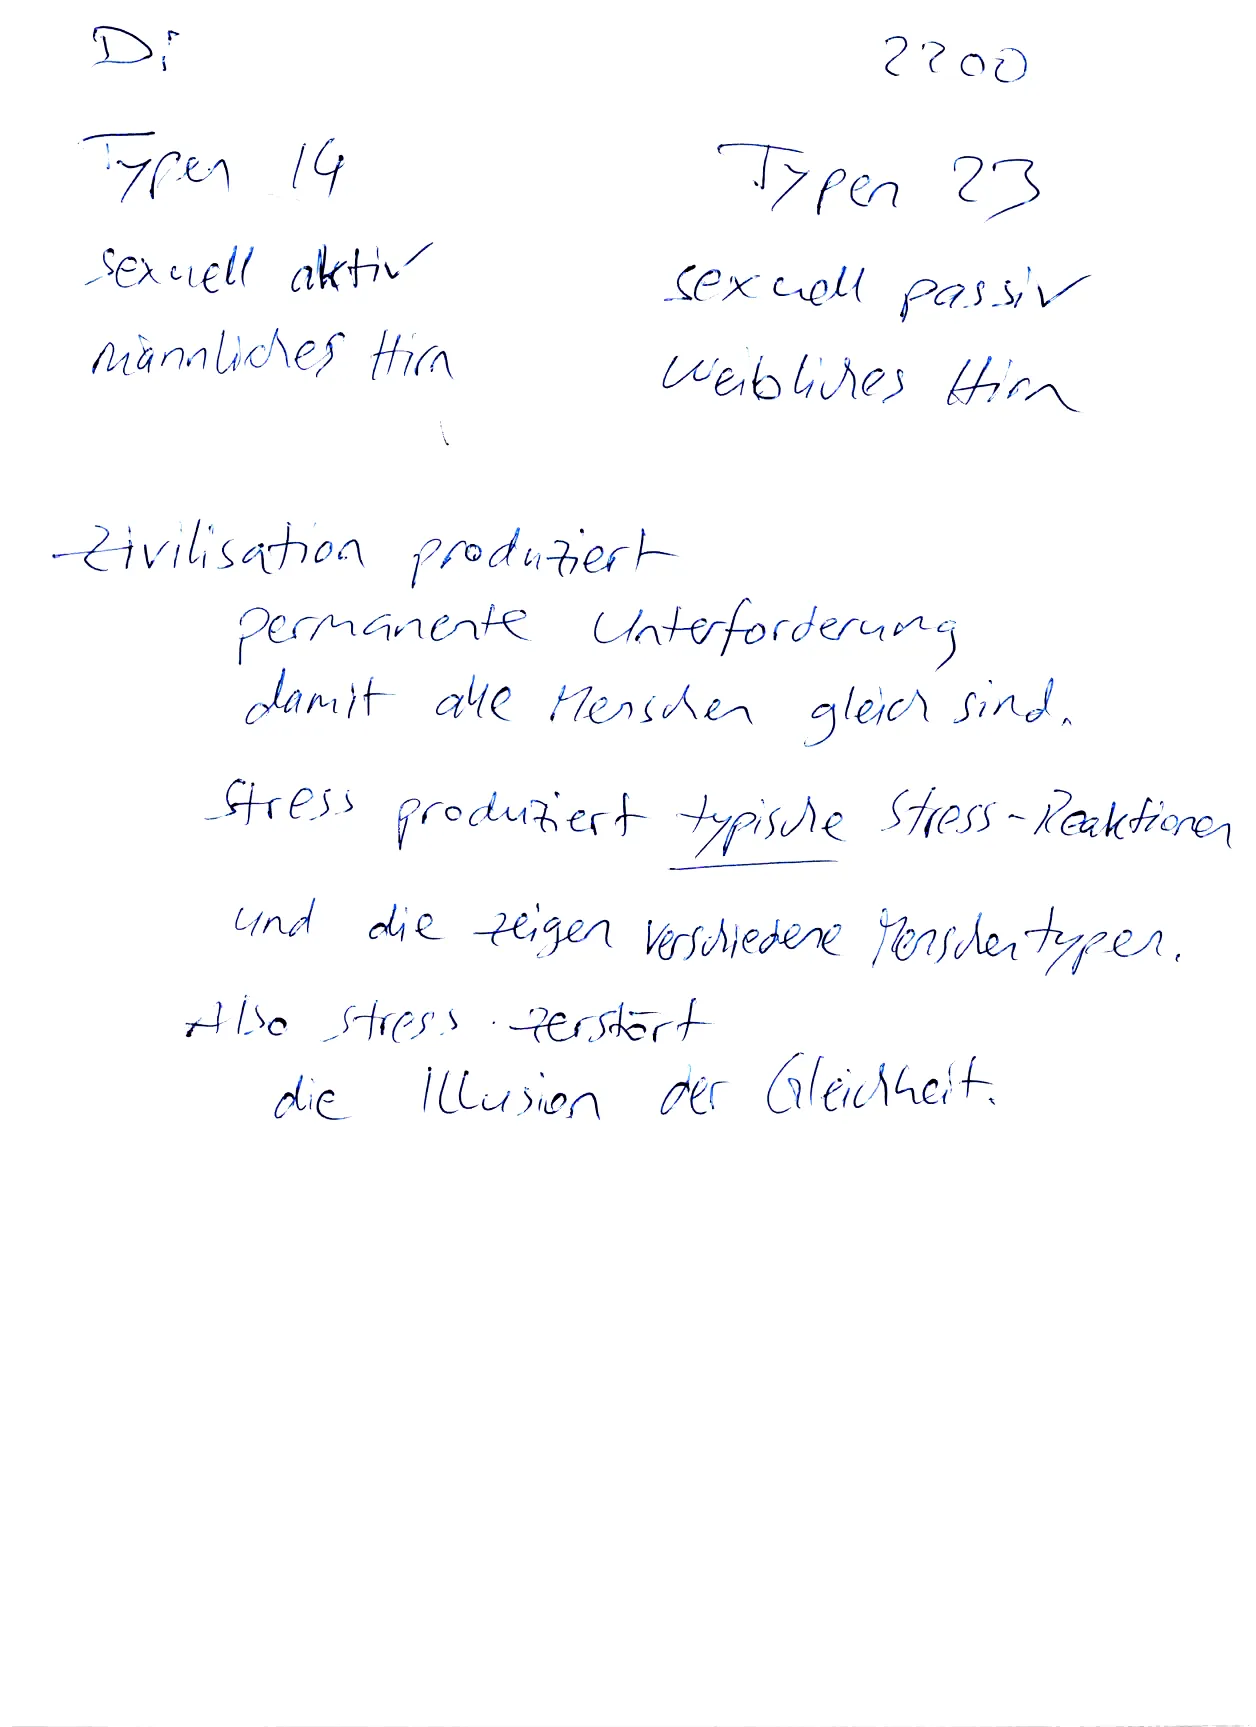 Di 2200
Typen 14 Typen 23
sexuell aktiv sexuell passiv
männliches Hirn weibliches Hirn
Zivilisation produziert
permanente Unterforderung
damit alle Menschen gleich sind.
Stress produziert typische Stress-Reaktionen
und die zeigen verschiedene Menschentypen.
Also stress zerstört
die Illusion der Gleichheit.